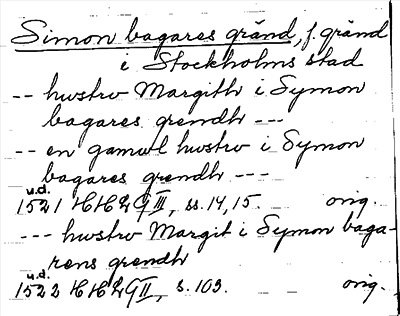 Simon bagares gränd, f. gränd
i Stockholms stad
-- hustrv Margith i Symon
bagares grendh ---
-- en gamvl hustrv i Symon
bagares grendh ---
u.d.
1521 HH III, ss. 14, 15. orig.
--- hustrv Margit i Symon baga-
rens grendh
u.d.
1522 HH II, s. 103. orig.